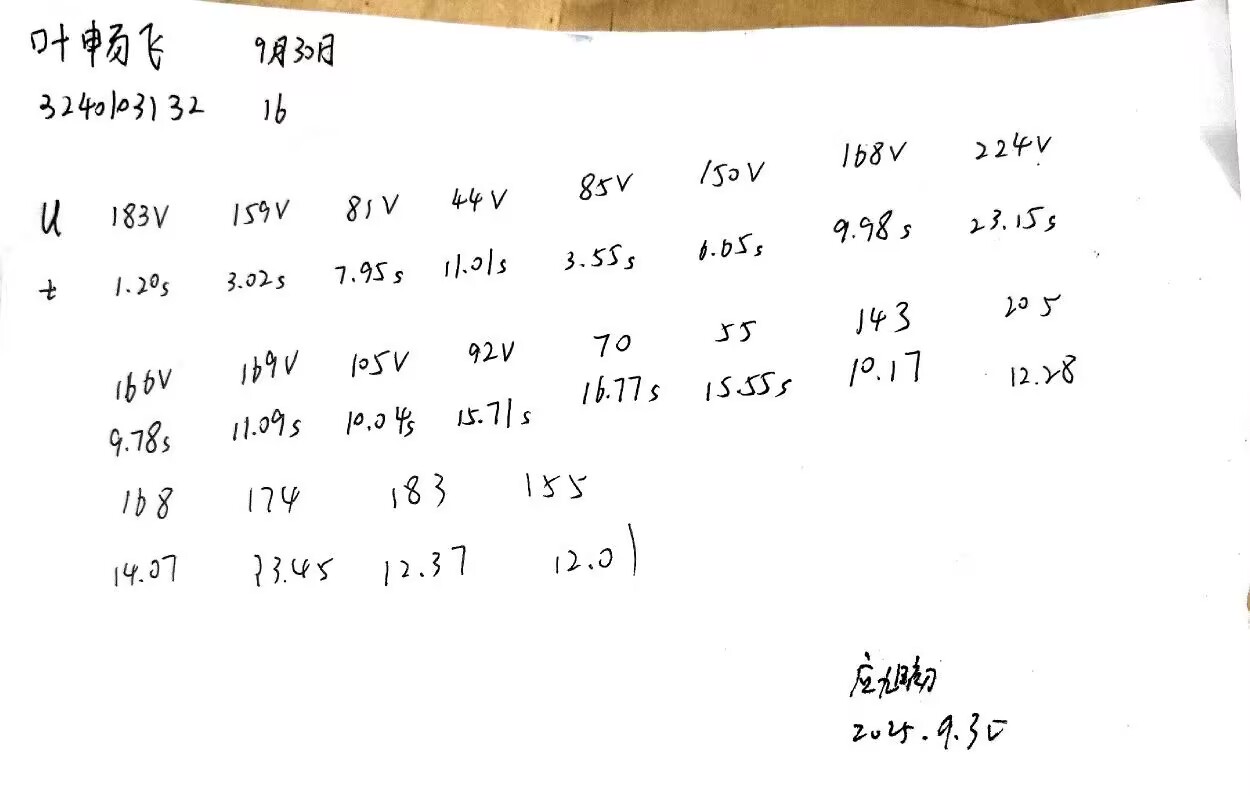 叶畅飞 9月30日
3240103132 16
U 183V 159V 81V 44V 85V 150V 168V 224V
t 1.20s 3.02s 7.95s 11.01s 3.55s 6.05s 9.98s 23.15s
166V 169V 105V 92V 70 55 143 205
9.78s 11.09s 10.04s 15.71s 16.77s 15.55s 10.17 12.28
168 174 183 155
14.07 23.45 12.37 12.01
2025.9.30